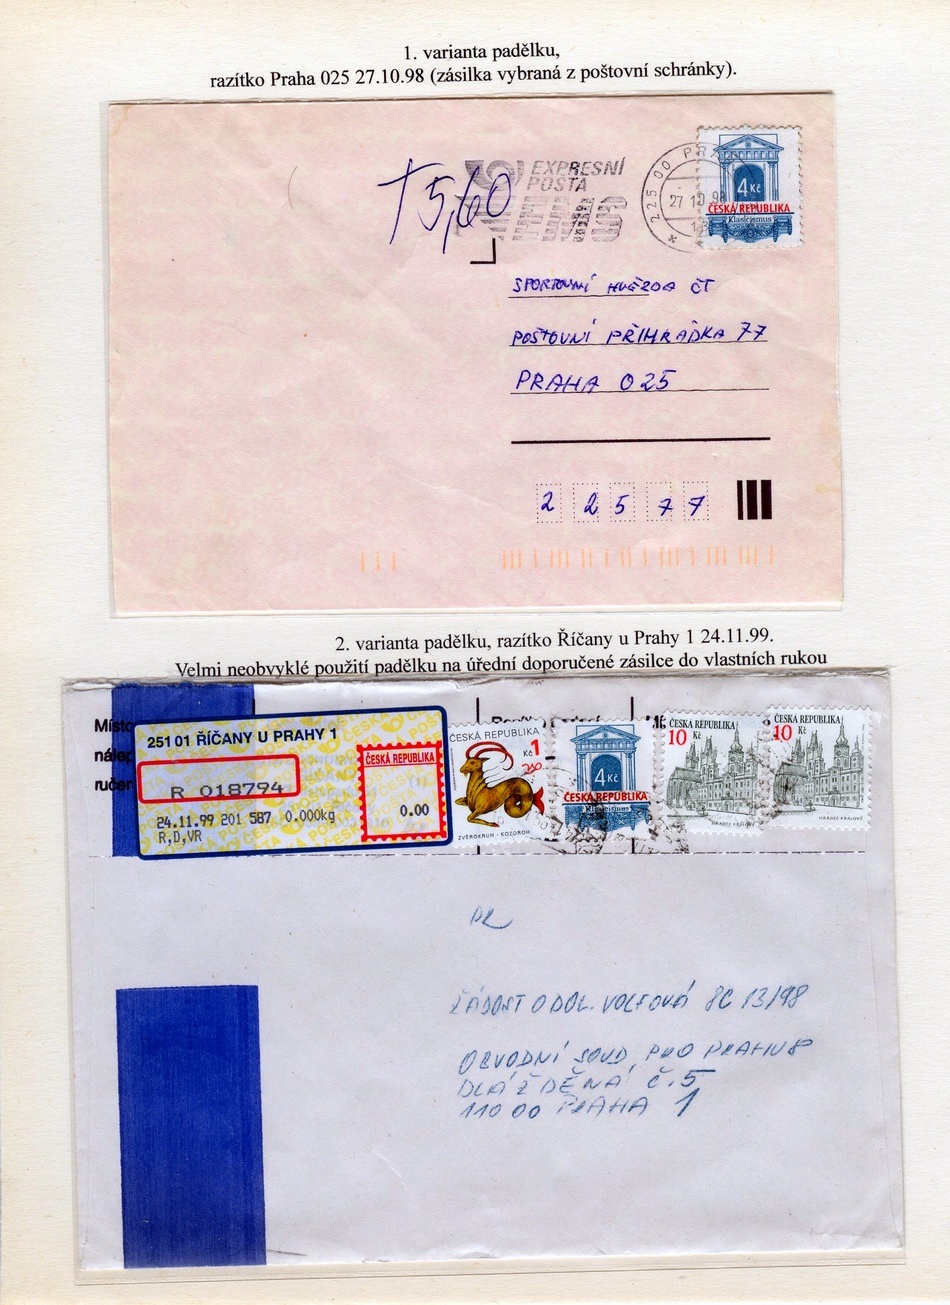 1. varianta padělku,
razítko Praha 025 27.10.98 (zásilka vybraná z poštovní schránky).
T 5,60
EXPRESNÍ
POŠTA
225 00 PRA
27 10 98
4 Kč
ČESKÁ REPUBLIKA
Klasicismus
SPORTOVNÍ HVĚZDA ČT
POŠTOVNÍ PŘIHRÁDKA 77
PRAHA 025
2 2 5 7 7
2. varianta padělku, razítko Říčany u Prahy 1 24.11.99.
Velmi neobvyklé použití padělku na úřední doporučené zásilce do vlastních rukou
Místo
nálep
ručen
251 01 ŘÍČANY U PRAHY 1
R 018794
24.11.99 201 587 0.000kg
R,D,VR
ČESKÁ REPUBLIKA
0.00
ČESKÁ REPUBLIKA
1
Kč
ZVĚROKRUH - KOZOROH
4 Kč
ČESKÁ REPUBLIKA
Klasicismus
ČESKÁ REPUBLIKA
10
Kč
HRADEC KRÁLOVÉ
ČESKÁ REPUBLIKA
10
Kč
HRADEC KRÁLOVÉ
ŽÁDOST O DOL. VOLFOVÁ 8C 13/98
OBVODNÍ SOUD PRO PRAHU 8
DLÁŽDĚNÁ Č. 5
110 00 PRAHA 1